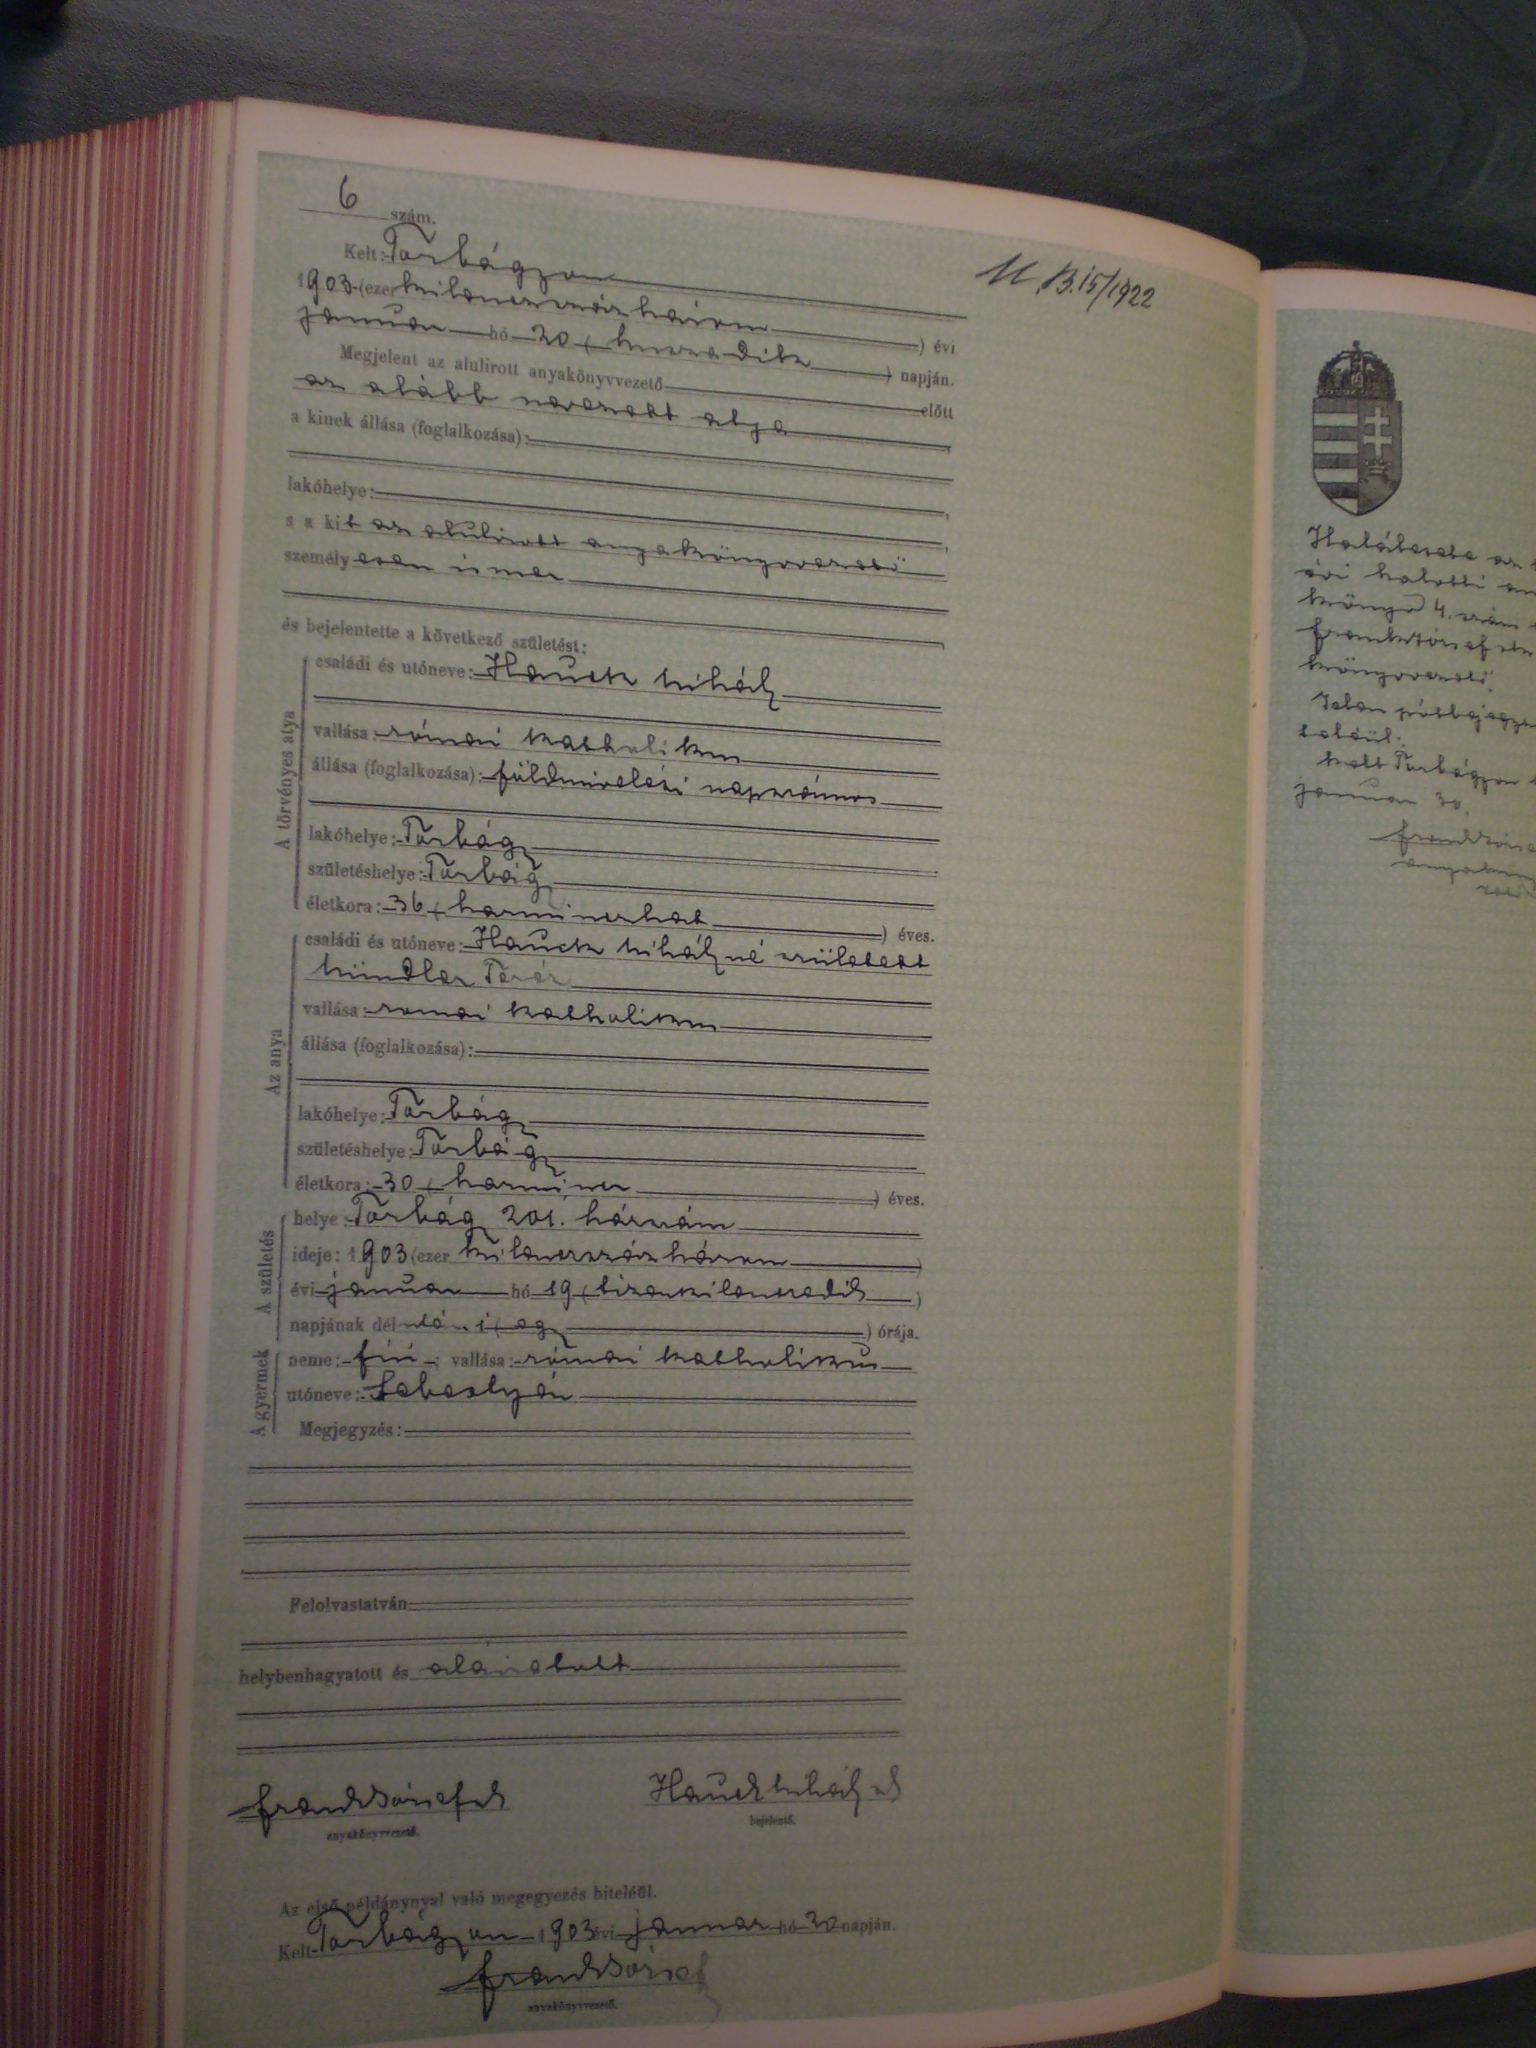 6 szám.
M. B. 15/1922
Kelt: Torbágyon
1903 (ezer kilenczszázhárom) évi
januar hó 20 (huszadik) napján.
Megjelent az alulirott anyakönyvvezető előtt
az alább nevezett atya,
a kinek állása (foglalkozása):
lakóhelye:
s a kit az alulirott anyakönyvvezető
személyesen ismer
és bejelentette a következő születést:
A törvényes atya
családi és utóneve: Hauck Mihály
vallása: római katholikus
állása (foglalkozása): földmivelési napszámos
lakóhelye: Torbágy
születéshelye: Torbágy
életkora: 36 (harminczhat) éves.
Az anya
családi és utóneve: Hauck Mihályné született
Mindler Teréz
vallása: romai katholikus
állása (foglalkozása):
lakóhelye: Torbágy
születéshelye: Torbágy
életkora: 30 (harmincz) éves.
A születés
helye: Torbágy 201. házszám
ideje: 1903 (ezer kilenczszázhárom)
évi januar hó 19 (tizenkilenczedik)
napjának délután 1 (egy) órája.
A gyermek
neme: fiú; vallása: római katholikus
utóneve: Sebestyén
Megjegyzés:
Felolvastatván
helybenhagyatott és aláiratott
Frank József sk
anyakönyvvezető.
Hauck Mihály sk
bejelentő.
Az első példánynyal való megegyezés hiteléül.
Kelt Torbágyon 1903 évi januar hó 20 napján.
Frank József
anyakönyvvezető.
Halálesete az
évi halotti
könyv 4. szám
Frank József
könyvvezető.
Jelen
Kelt Torbágyon
januar 30.